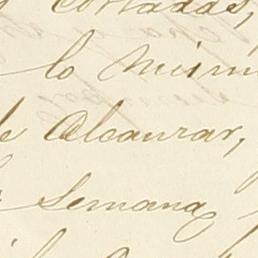 y cortadas,
lo mism
de Alcanzar,
semana